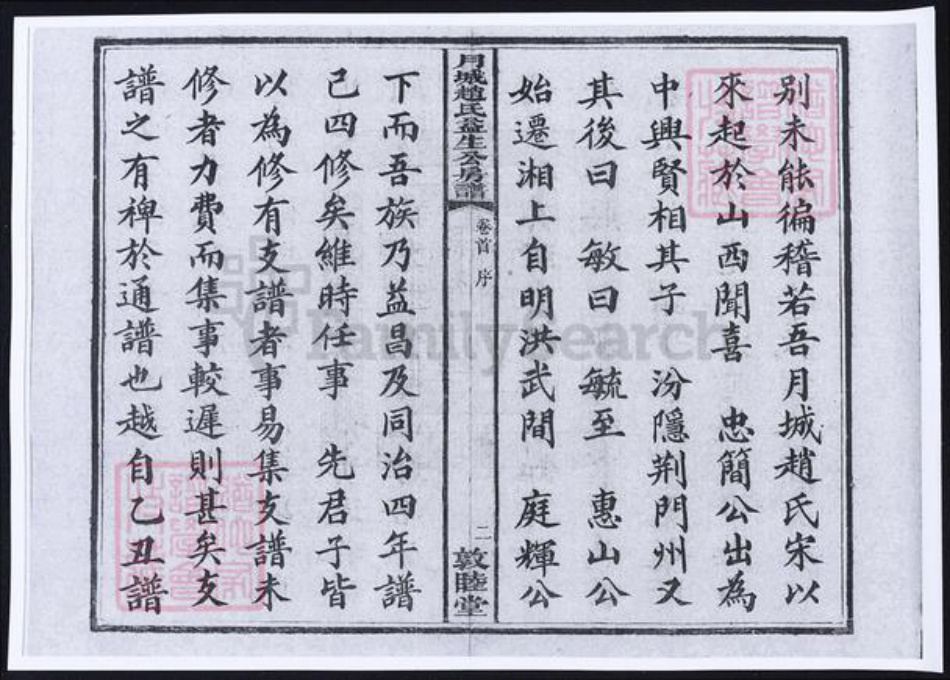 别未能徧稽若吾月城趙氏宋以
來起於山西聞喜 忠簡公出為
中興賢相其子 汾隱荆門州又
其後曰 敏曰 毓至 惠山公
始遷湘上自明洪武間 庭輝公
月城趙氏益生公房譜
卷首 序
二
敦睦堂
下而吾族乃益昌及同治四年譜
已四修矣維時任事 先君子皆
以為修有支譜者事易集支譜未
修者力費而集事較遲則甚矣支
譜之有裨於通譜也越自乙丑譜
FamilySearch